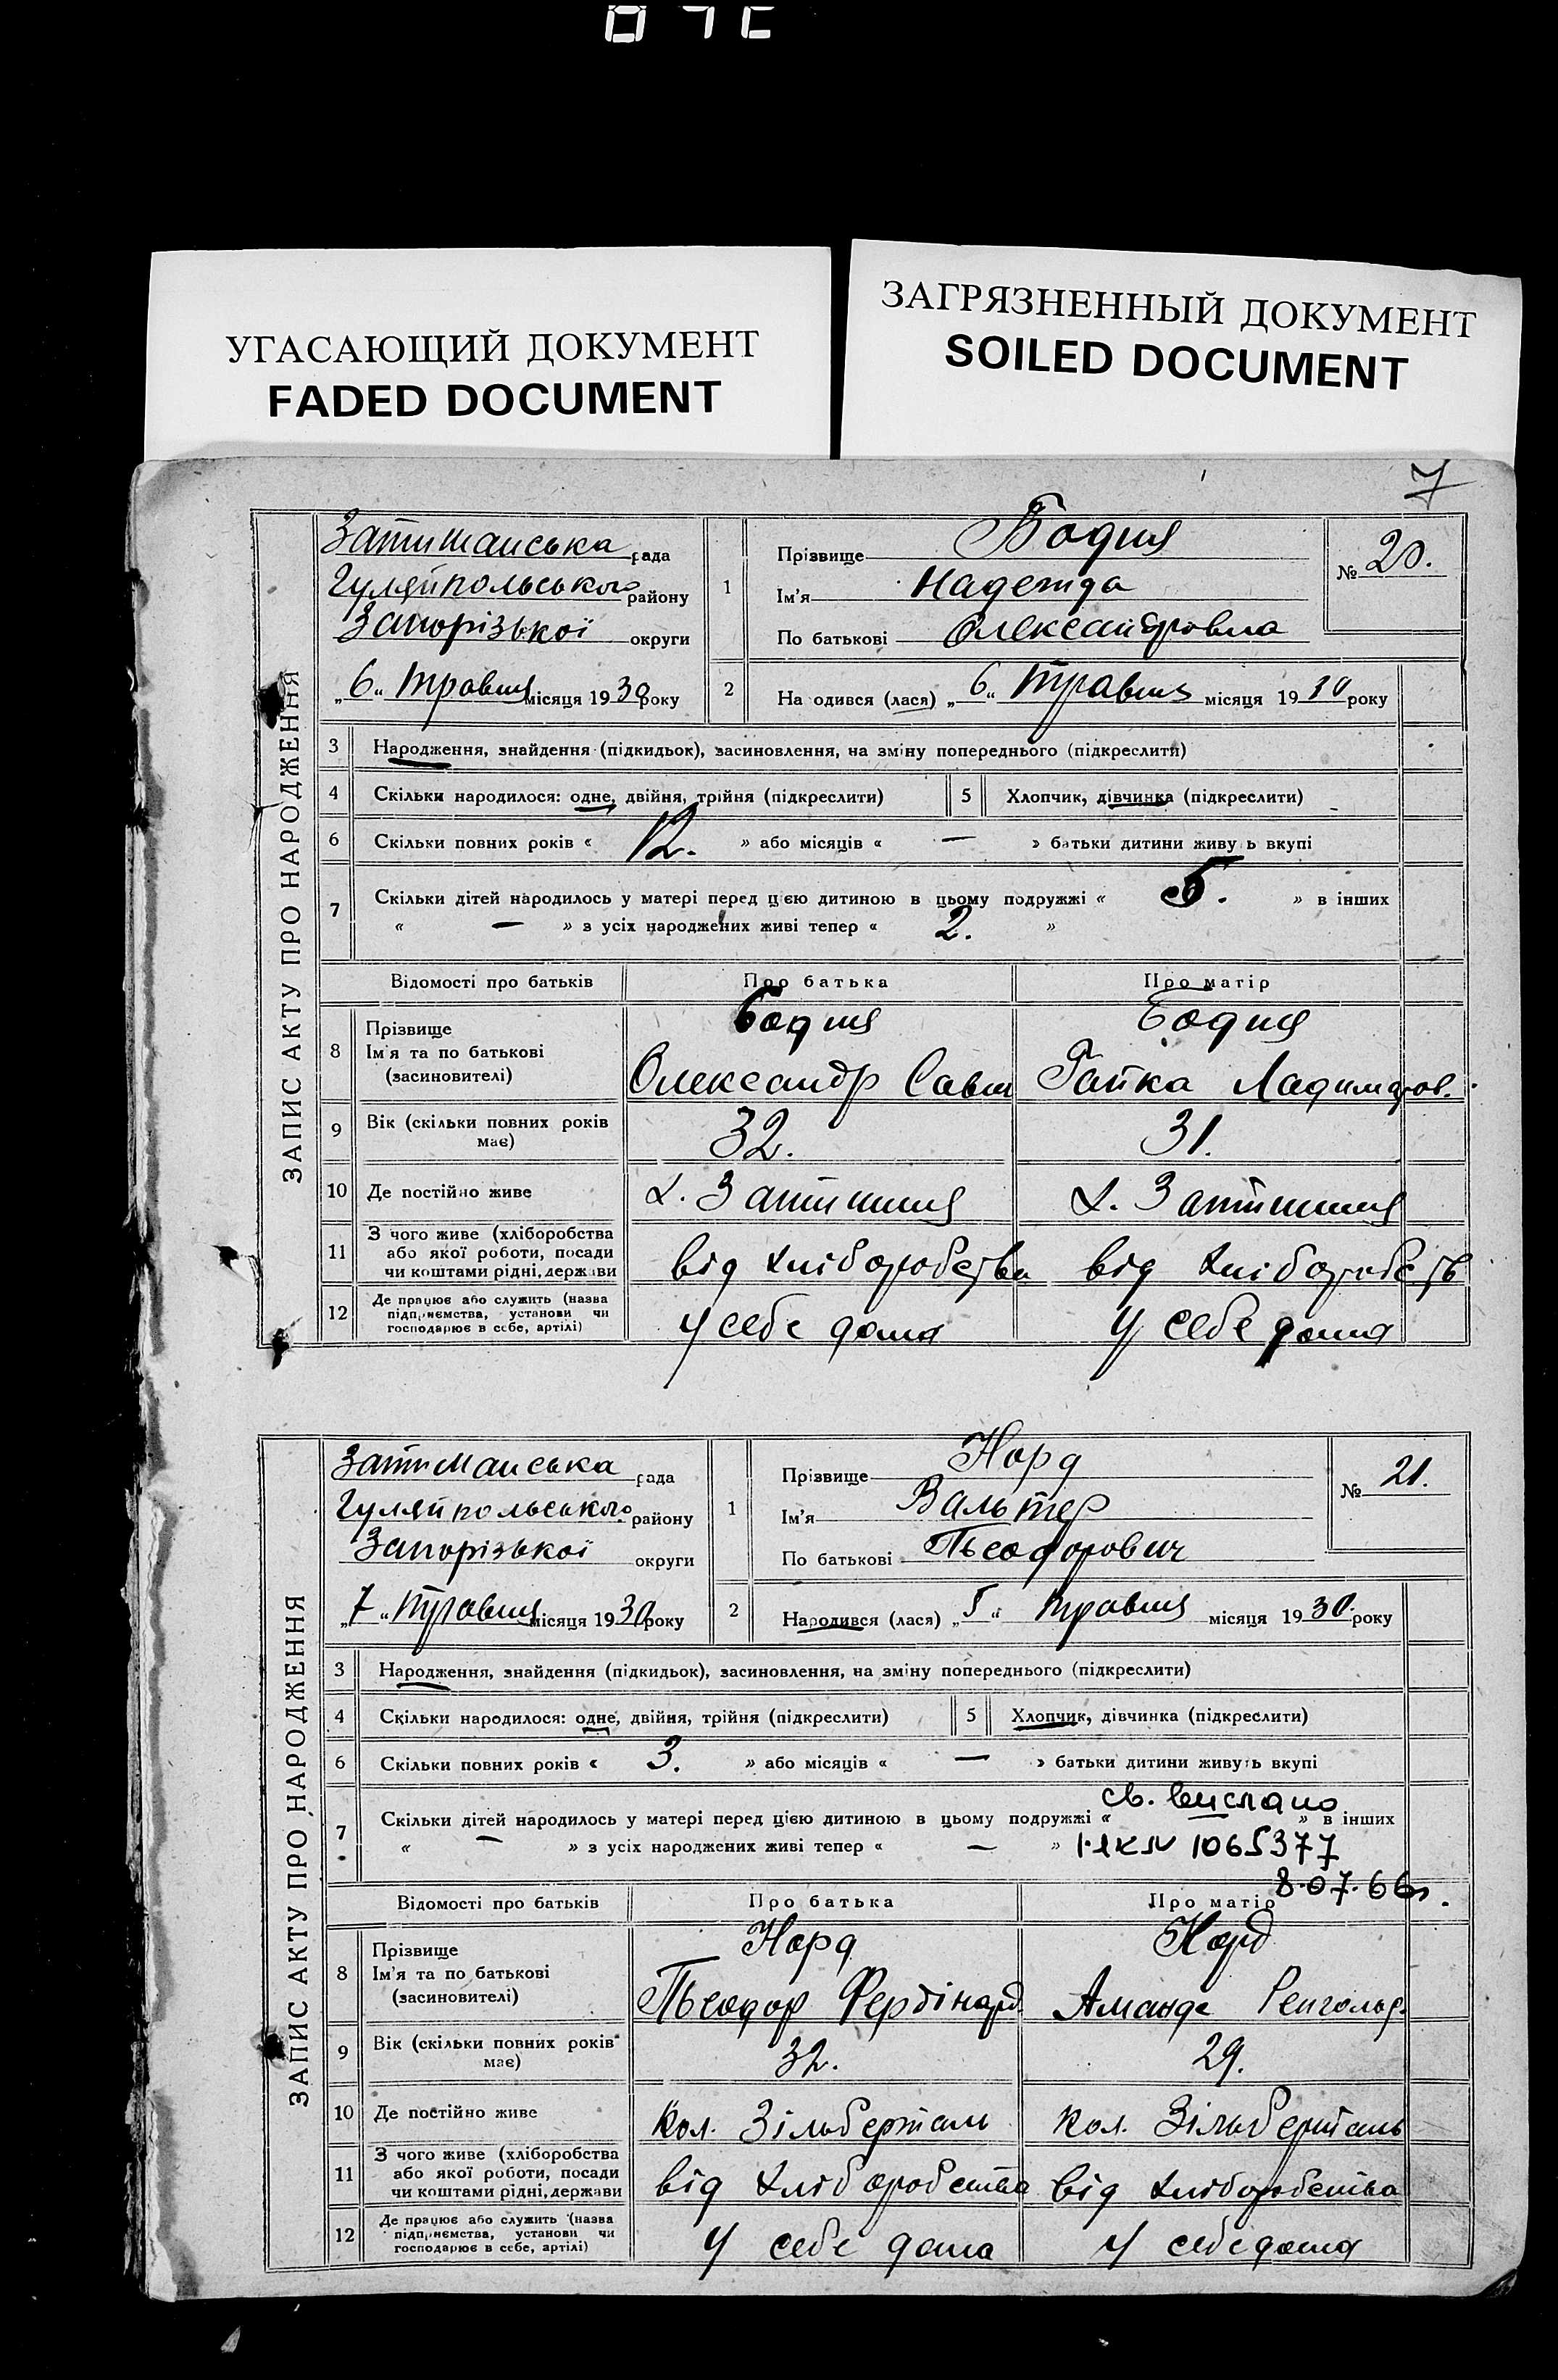 УГАСАЮЩИЙ ДОКУМЕНТ
FADED DOCUMENT
ЗАГРЯЗНЕННЫЙ ДОКУМЕНТ
SOILED DOCUMENT
7
ЗАПИС АКТУ ПРО НАРОДЖЕННЯ
Затишанська рада
Гуляйпольського району
Запорізької округи
„6“ травня місяця 1930 року
1
Прізвище Бодня
Ім'я Надежда
По батькові Олександровна
№ 20.
2
На одився (лася) „6“ травня місяця 1930 року
3 Народження, знайдення (підкидьок), засиновлення, на зміну попереднього (підкреслити)
4 Скільки народилося: одне, двійня, трійня (підкреслити) 5 Хлопчик, дівчинка (підкреслити)
6 Скільки повних років « 12. » або місяців « — » батьки дитини живу ь вкупі
7 Скільки дітей народилось у матері перед цією дитиною в цьому подружжі « 5. » в інших
« — » з усіх народжених живі тепер « 2. »
Відомості про батьків Про батька Про матір
8 Прізвище Бодня Бодня
Ім'я та по батькові
(засновителі) Олександр Савич Гапка Ладимиров.
9 Вік (скільки повних років має) 32. 31.
10 Де постійно живе х. Затишшя х. Затишшя
11 З чого живе (хліборобства
або якої роботи, посади
чи коштами рідні, держави від хліборобства від хліборобств
12 Де працює або служить (назва
підприємства, установи чи
господарює в себе, артілі) у себе дома у себе дома
ЗАПИС АКТУ ПРО НАРОДЖЕННЯ
Затишанська рада
Гуляйпольського району
Запорізької округи
„7“ травня місяця 1930 року
1
Прізвище Норд
Ім'я Вальтер
По батькові Тьеодорович
№ 21.
2
Народився (лася) „5“ травня місяця 1930. року
3 Народження, знайдення (підкидьок), засиновлення, на зміну попереднього (підкреслити)
4 Скільки народилося: одне, двійня, трійня (підкреслити) 5 Хлопчик, дівчинка (підкреслити)
6 Скільки повних років « 3. » або місяців « — » батьки дитини живуть вкупі
св. вислано
7 Скільки дітей народилось у матері перед цією дитиною в цьому подружжі « » в інших
« — » з усіх народжених живі тепер « — » 1065377
8.07.66г.
Відомості про батьків Про батька Про матір
8 Прізвище Норд Норд
Ім'я та по батькові
(засиновителі) Тьеодор Фердінард Аманда Ренгольд.
9 Вік (скільки повних років має) 32. 29.
10 Де постійно живе кол. Зільберталь кол. Зільберталь
11 З чого живе (хліборобства
або якої роботи, посади
чи коштами рідні, держави від хліборобства від хліборобства
12 Де працює або служить (назва
підприємства, установи чи
господарює в себе, артілі) у себе дома у себе дома